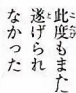 此度もまた
遂げられ
なかった